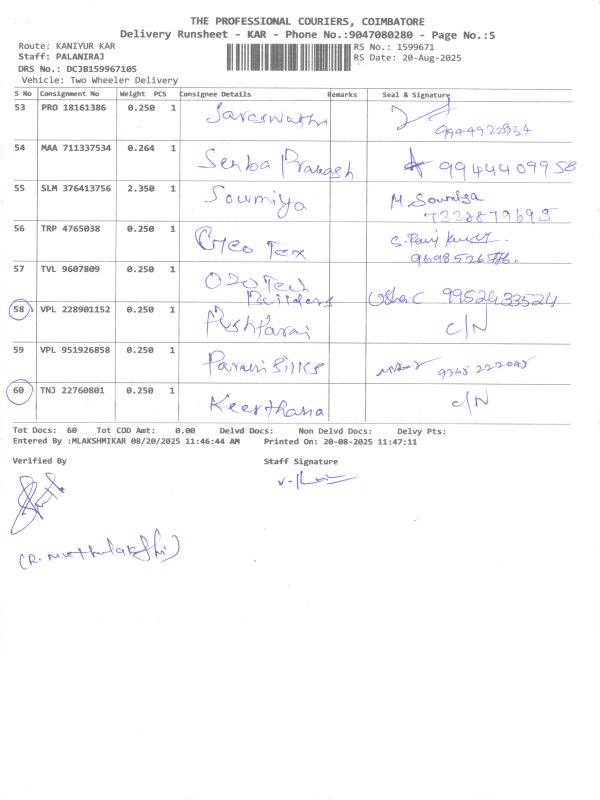 THE PROFESSIONAL COURIERS, COIMBATORE
Delivery Runsheet - KAR - Phone No.:9047080280 - Page No.:5
Route: KANIYUR KAR RS No.: 1599671
Staff: PALANIRAJ RS Date: 20-Aug-2025
DRS No.: DCJB159967105
Vehicle: Two Wheeler Delivery
S No Consignment No Weight PCS Consignee Details Remarks Seal & Signature
53 PRO 18161386 0.250 1 Saraswathi
9944922834
54 MAA 711337534 0.264 1 Senba Prakash 9944409958
55 SLM 376413756 2.350 1 Soumiya M. Soumiya
7338879695
56 TRP 4765038 0.250 1 Geo Tex
57 TVL 9607809 0.250 1 O2O Tech
Builders Usha C 9952433524
58 VPL 228901152 0.250 1 C/N
59 VPL 951926858 0.250 1 Parani Silks 9345222045
60 TNJ 22760801 0.250 1 Keerthana C/N
Tot Docs: 60 Tot COD Amt: 0.00 Delvd Docs: Non Delvd Docs: Delvy Pts:
Entered By :MLAKSHMIKAR 08/20/2025 11:46:44 AM Printed On: 20-08-2025 11:47:11
Verified By Staff Signature
(R. Muthulakshmi)